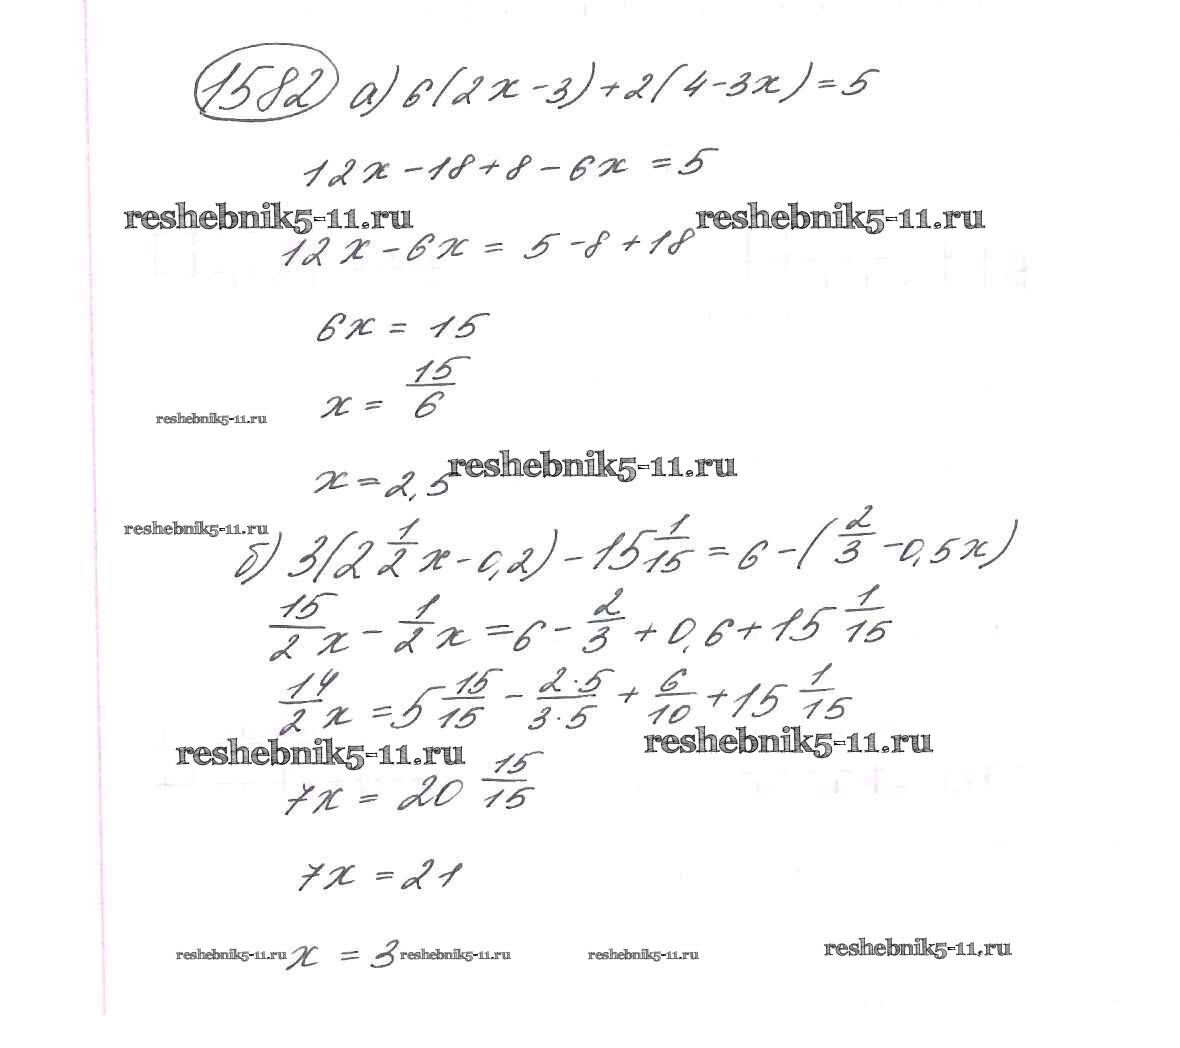 1582 а) 6(2x-3)+2(4-3x)=5
12x-18+8-6x=5
reshebnik5-11.ru reshebnik5-11.ru
12x-6x=5-8+18
6x=15
x=15/6
reshebnik5-11.ru
x=2,5 reshebnik5-11.ru
reshebnik5-11.ru
б) 3(2 1/2 x-0,2)-15 1/15=6-(2/3-0,5x)
15/2 x-1/2 x=6-2/3+0,6+15 1/15
14/2 x=5 15/15-2·5/3·5+6/10+15 1/15
reshebnik5-11.ru reshebnik5-11.ru
7x=20 15/15
7x=21
reshebnik5-11.ru x=3 reshebnik5-11.ru reshebnik5-11.ru reshebnik5-11.ru